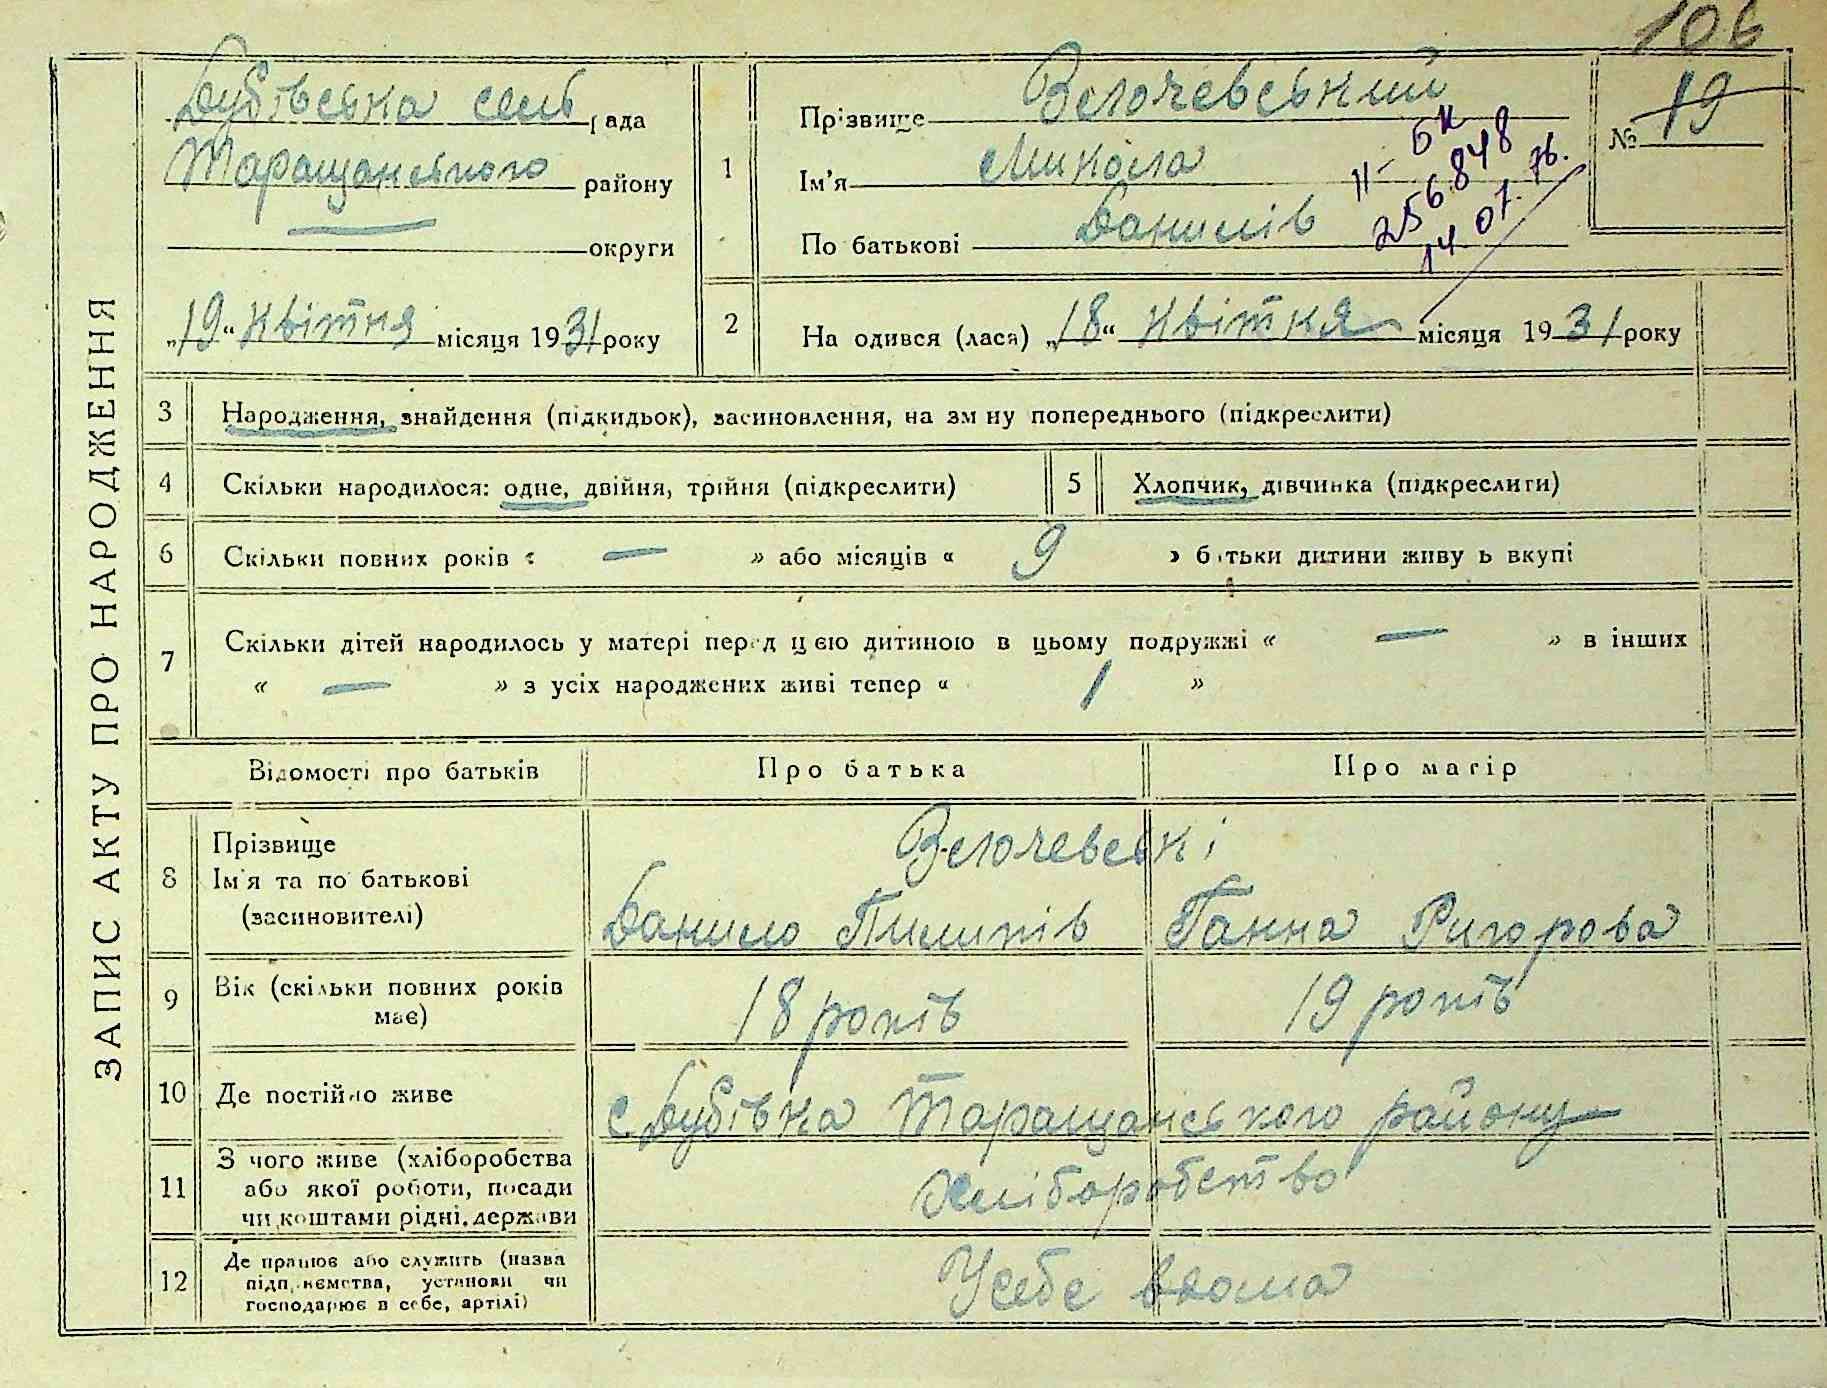 106
ЗАПИС АКТУ ПРО НАРОДЖЕННЯ
Дубівська сель рада
Таращанського району
округи
„19“ квітня місяця 1931 року
1
Прізвище Вєлочевський
Ім'я Микола
По батькові Данилів
II-БК
256.848
14.07.76.
№ 19
2 На одився (лася) „18“ квітня місяця 1931 року
3 Народження, знайдення (підкидьок), засиновлення, на зм ну попереднього (підкреслити)
4 Скільки народилося: одне, двійня, трійня (підкреслити)
5 Хлопчик, дівчинка (підкреслити)
6 Скільки повних років « — » або місяців « 9 » батьки дитини живу ь вкупі
7 Скільки дітей народилось у матері перед цією дитиною в цьому подружжі « — » в інших
« — » з усіх народжених живі тепер « 1 »
Відомості про батьків Про батька Про матір
8 Прізвище
Ім'я та по батькові
(засиновителі)
Вєлочевські
Данило Пилипів Ганна Ригорова
9 Вік (скільки повних років
має)
18 років 19 років
10 Де постійно живе с Дубівка Таращанського району
11 З чого живе (хліборобства
або якої роботи, посади
чи коштами рідні, держави
Хліборобство
12 Де працює або служить (назва
підп.ємства, установи чи
господарює в себе, артілі)
Усебе вдома